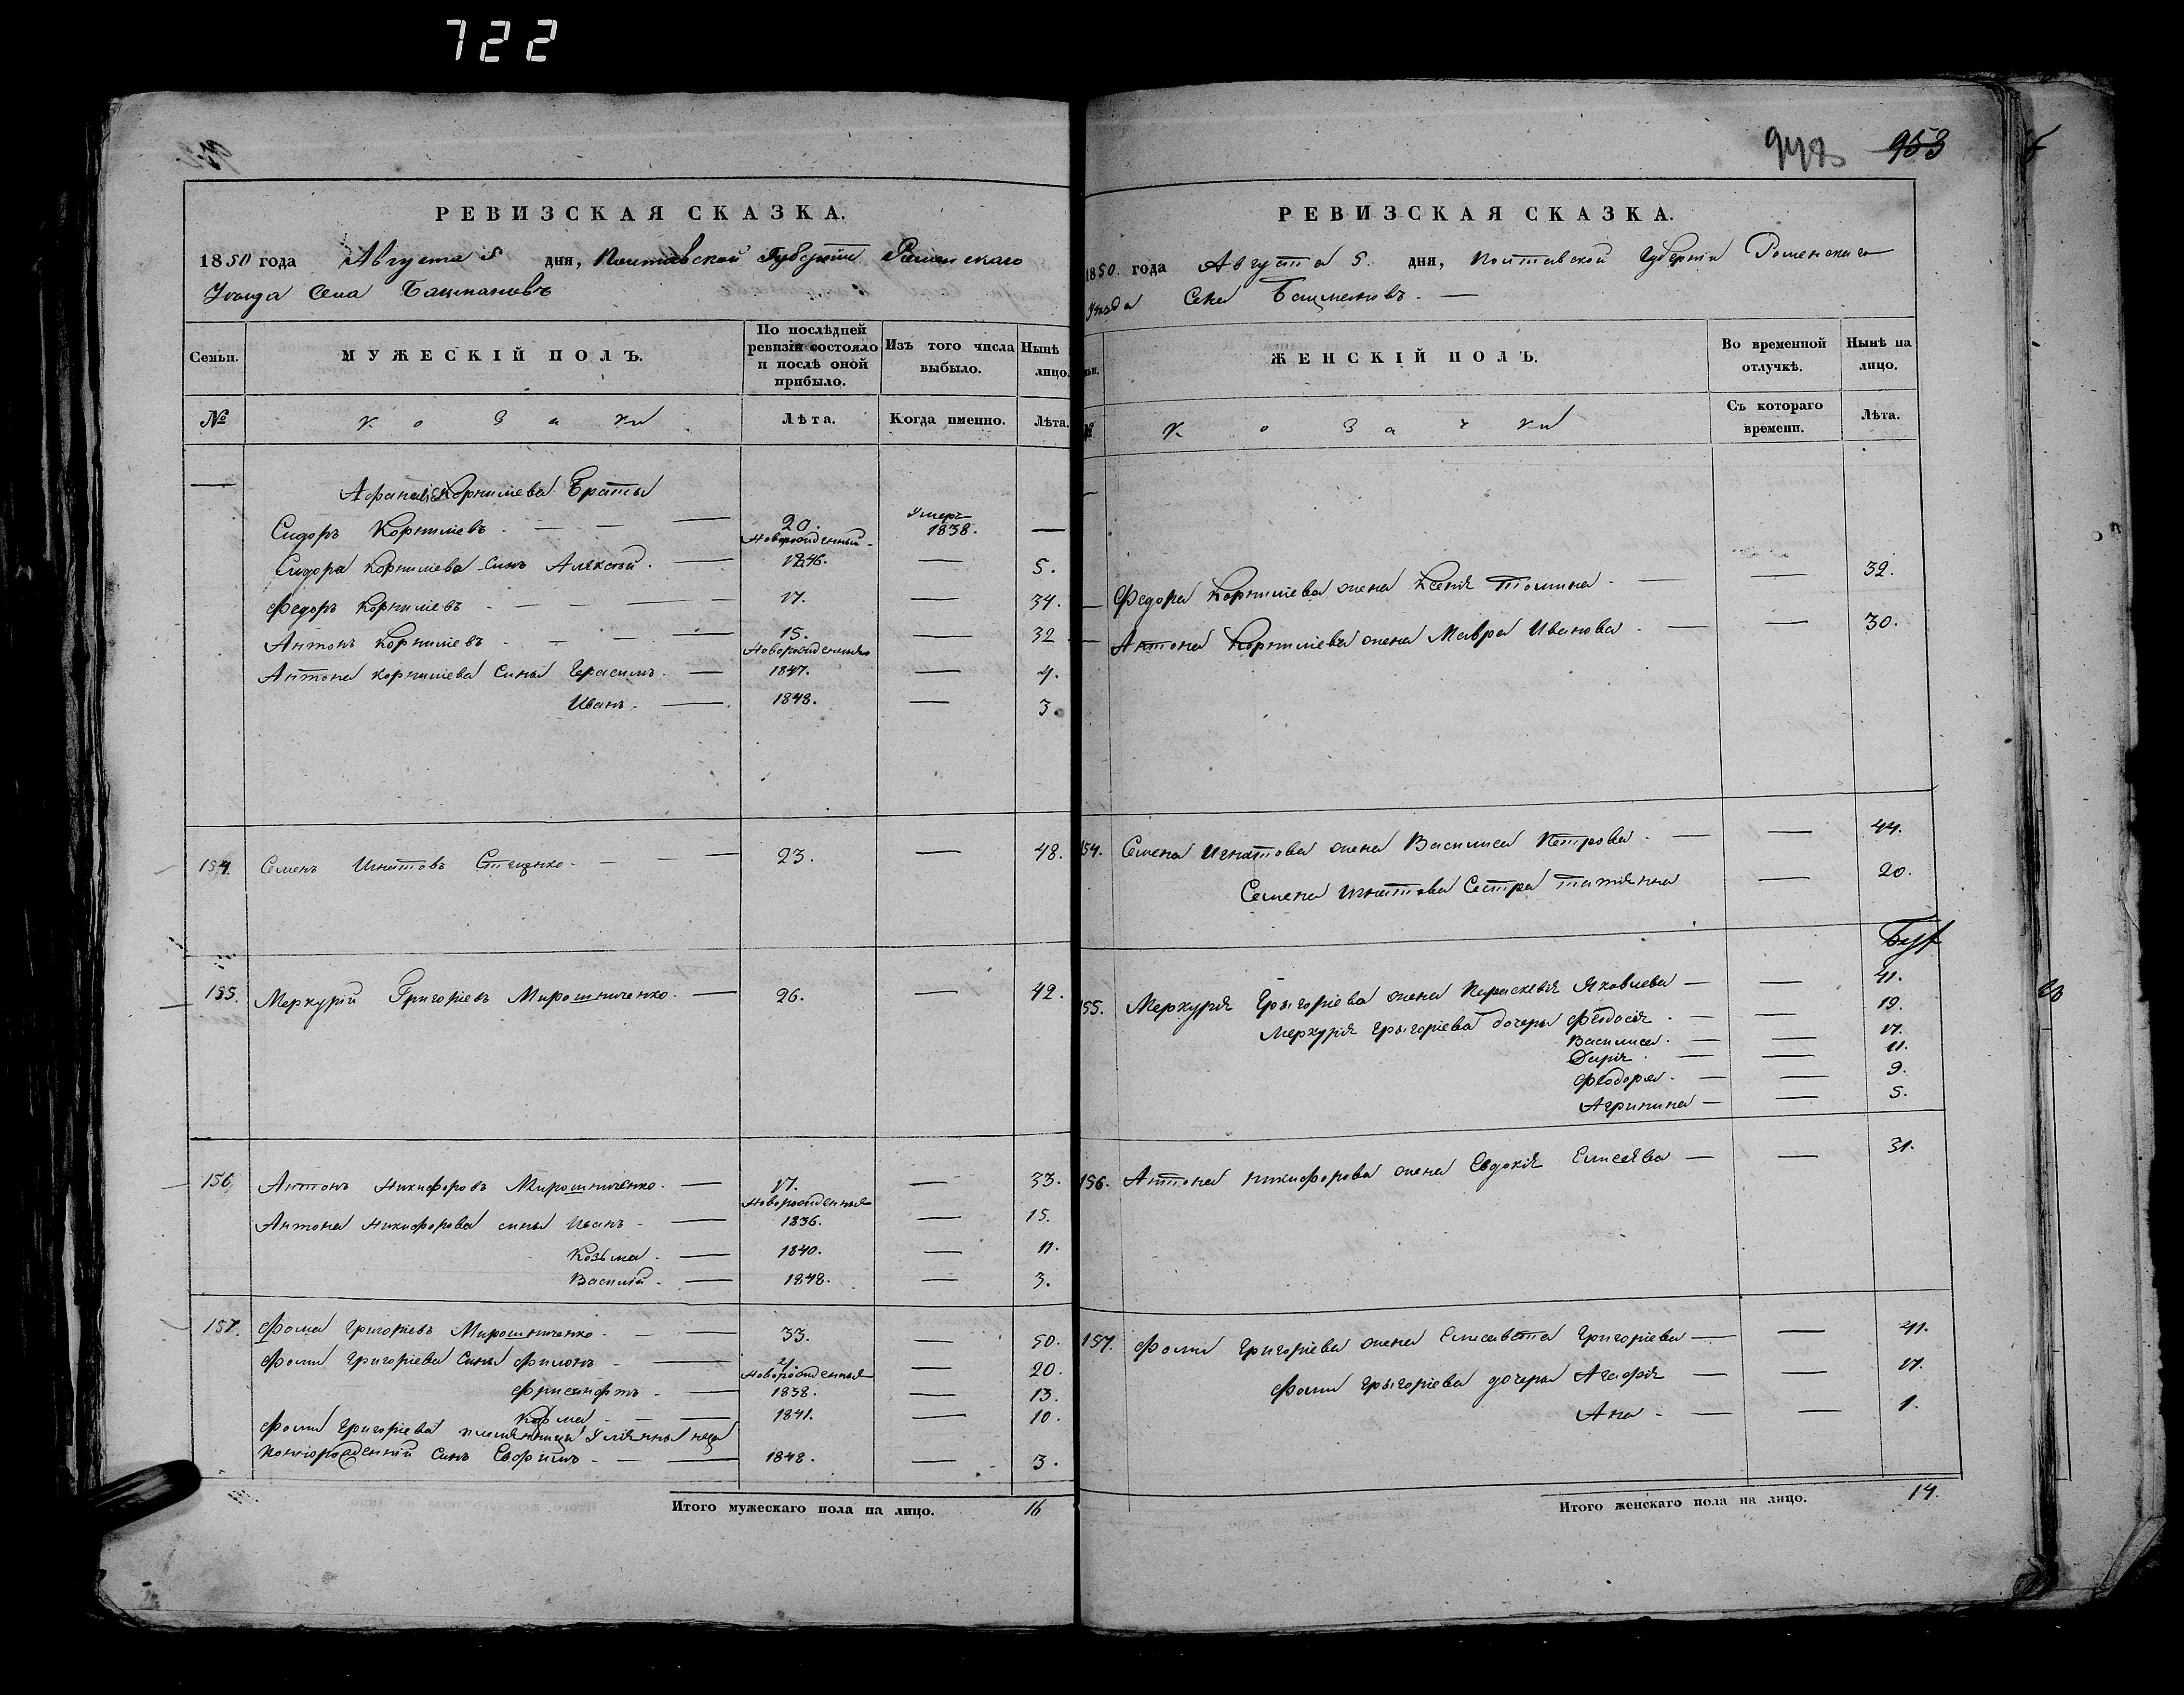 722
РЕВИЗСКАЯ СКАЗКА.
1850 года Августа 5 дня, Полтавской Губерніи Роменскаго
Уезда Села Бацмановъ
Семьи. МУЖЕСКІЙ ПОЛЪ. По послѣдней ревизіи состояло и послѣ оной прибыло. Изъ того числа выбыло. Нынѣ лицо.
№ Козаки Лѣта. Когда именно. Лѣта.
Афанасія Корнилиева Браты
Сидоръ Корнилиевъ 20. Умеръ 1838.
Новорожденный
Сидора Корнилиева Синъ Алексѣй. 1846. 5.
Федоръ Корнилиевъ 17. 34.
Антонъ Корнилиевъ 15. 32
Новорожденныя
Антона Корнилиева Сины Герасимъ. 1847. 4.
Иванъ. 1848. 3.
154. Семенъ Игнатовъ 23. 48.
155. Меркурій Григоріевъ Мирошниченко. 26. 42.
156 Антонъ Никифоровъ Мирошниченко. 17. 33.
Новорожденныя
Антона Никифорова сины Иванъ 1836. 15.
Козьма. 1840. 11.
Василій. 1848. 3.
157. Фома Григоріевъ Мирошниченко. 33. 50.
Фомы Григоріева Сины Филонъ 4. 20.
Новорожденныя
1838. 13.
1841. 10.
Фомы Григоріева племянницы
Синъ 1848. 3.
Итого мужескаго пола на лицо. 16
948 953
РЕВИЗСКАЯ СКАЗКА.
1850. года Августа 5. дня, Полтавской Губерніи Роменскаго
Уезда Села Бацмановъ.
ЖЕНСКІЙ ПОЛЪ. Во временной отлучкѣ. Нынѣ на лицо.
№ Козачки Съ котораго времени. Лѣта.
Федора Корнилиева жена Ксенія Фомина 32.
Антона Корнилиева жена Мавра Иванова 30.
154. Семена Игнатова жена Василиса Петрова 44.
Семена Игнатова Сестра Татіянна 20.
155. Меркурія Григоріева жена Параскевія Яковлева 41.
Меркурія Григоріева дочеры Феодосія 19.
Василиса. 17.
Дарія 11.
Феодора. 9.
Агрипина 5.
156. Антона Никифорова жена Евдокія Елисеева 31.
157. Фомы Григоріева жена Елисавета Григоріева 41.
Фомы Григоріева дочеры Агафія 17.
Анна 1.
Итого женскаго пола на лицо. 14.